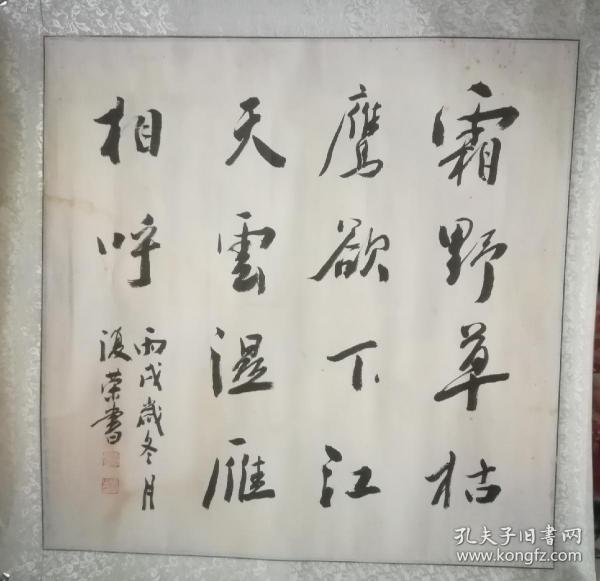 霜野草枯
鹰欲下江
天雲湿雁
相呼
丙戌歲冬月
復荣書
孔夫子旧书网
www.kongfz.com